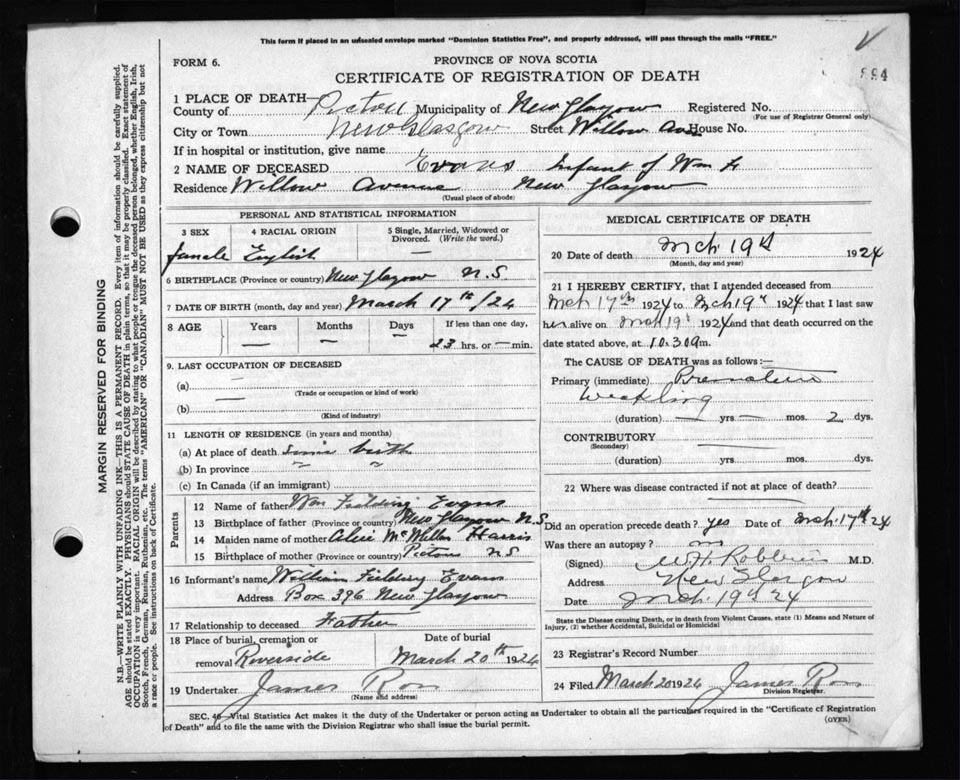 This form if placed in an unsealed envelope marked "Dominion Statistics Free", and properly addressed, will pass through the mails "FREE."
FORM 6.
PROVINCE OF NOVA SCOTIA
CERTIFICATE OF REGISTRATION OF DEATH
894
1 PLACE OF DEATH—
County of Pictou Municipality of New Glasgow Registered No.
(For use of Registrar General only)
City or Town New Glasgow Street Willow Ave House No.
If in hospital or institution, give name
2 NAME OF DECEASED Evans Infant of Wm F
Residence Willow Avenue New Glasgow
(Usual place of abode)
PERSONAL AND STATISTICAL INFORMATION
3 SEX 4 RACIAL ORIGIN 5 Single, Married, Widowed or Divorced. (Write the word.)
female English —
6 BIRTHPLACE (Province or country) New Glasgow N.S.
7 DATE OF BIRTH (month, day and year) March 17th/24
8 AGE Years Months Days If less than one day,
— — — 23 hrs. or — min.
9. LAST OCCUPATION OF DECEASED
(a) —
(Trade or occupation or kind of work)
(b) —
(Kind of industry)
11 LENGTH OF RESIDENCE (in years and months)
(a) At place of death since birth
(b) In province " "
(c) In Canada (if an immigrant)
Parents
12 Name of father Wm Fielding Evans
13 Birthplace of father (Province or country) New Glasgow N.S.
14 Maiden name of mother Alice McMillan Harris
15 Birthplace of mother (Province or country) Pictou N.S
16 Informant's name William Fielding Evans
Address Box 396 New Glasgow
17 Relationship to deceased Father
18 Place of burial, cremation or removal Riverside
Date of burial March 20th 1924
19 Undertaker James Ross
(Name and address)
MEDICAL CERTIFICATE OF DEATH
20 Date of death Mch. 19th 1924
(Month, day and year)
21 I HEREBY CERTIFY, that I attended deceased from
Mch 17th 1924 to Mch 19th 1924 that I last saw
her alive on Mch 19th 1924 and that death occurred on
date stated above, at 10.30 a m.
The CAUSE OF DEATH was as follows:—
Primary (immediate) Premature
Weakling
(duration) — yrs — mos. 2 dys.
CONTRIBUTORY
(Secondary)
(duration) yrs. mos. dys.
22 Where was disease contracted if not at place of death?
Did an operation precede death? yes Date of Mch. 17th 24
Was there an autopsy? no
(Signed) M.D.
Address New Glasgow
Date Mch. 19th 24
State the Disease causing Death, or in death from Violent Causes, state (1) Means and Nature of
Injury, (2) whether Accidental, Suicidal or Homicidal
23 Registrar's Record Number
24 Filed March 20 1924 James Ross
Division Registrar.
SEC. 46—Vital Statistics Act makes it the duty of the Undertaker or person acting as Undertaker to obtain all the particulars required in the "Certificate of Registration
of Death" and to file the same with the Division Registrar who shall issue the burial permit.
(OVER)
MARGIN RESERVED FOR BINDING
N.B.—WRITE PLAINLY WITH UNFADING INK—THIS IS A PERMANENT RECORD. Every item of information should be carefully supplied.
AGE should be stated EXACTLY. PHYSICIANS should STATE CAUSE OF DEATH in plain terms, so that it may be properly classified. Exact statement of
OCCUPATION is very important. RACIAL ORIGIN will be described by stating to what people or tongue the deceased person belonged, whether English, Irish,
Scotch, French, German, Russian, Ruthenian, etc. The terms "AMERICAN" or "CANADIAN" MUST NOT BE USED as they express citizenship but not
a race or people. See instructions on back of Certificate.